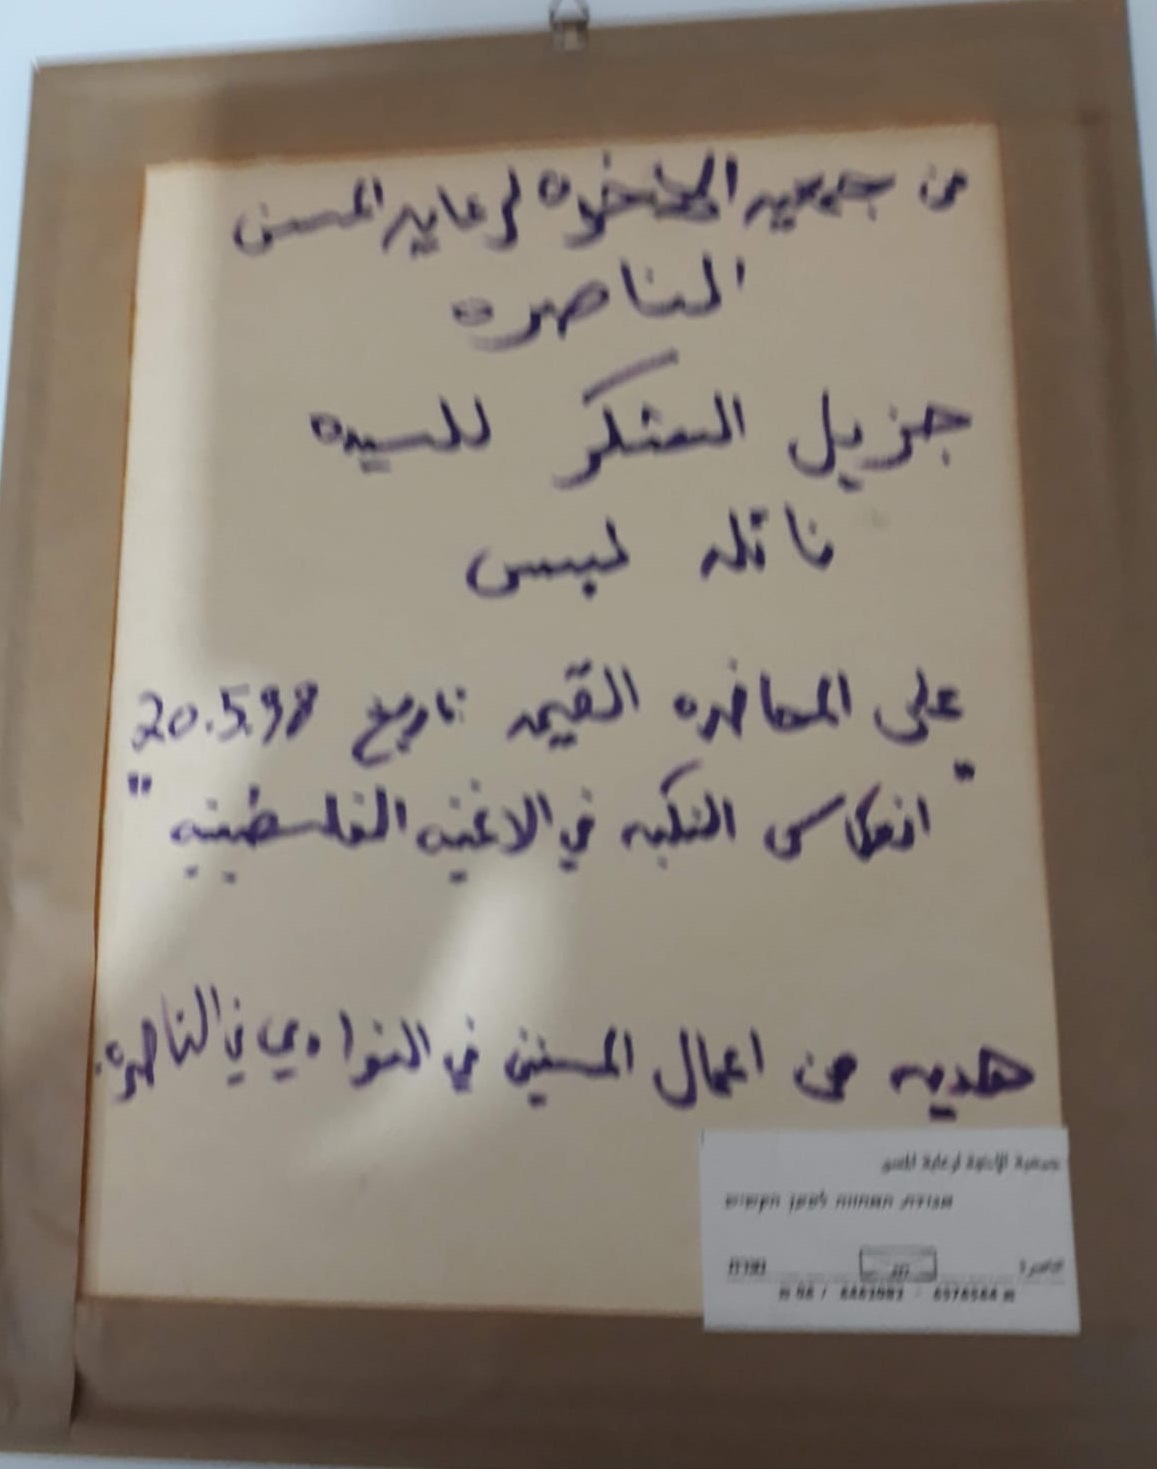 من جمعيه لرعايه المسن
الناصره
جزيل الشكر للسيده
نائله لبس
على المحاضره القيمه تاريخ 20.5.98
" انعكاس النكبه في الاغنيه الفلسطينيه "
هديه من اعمال المسنين في النوادي في الناصره.
جمعية الأخوة لرعاية المسن
אגודת האחווה למען הקשיש
الناصرة נצרת